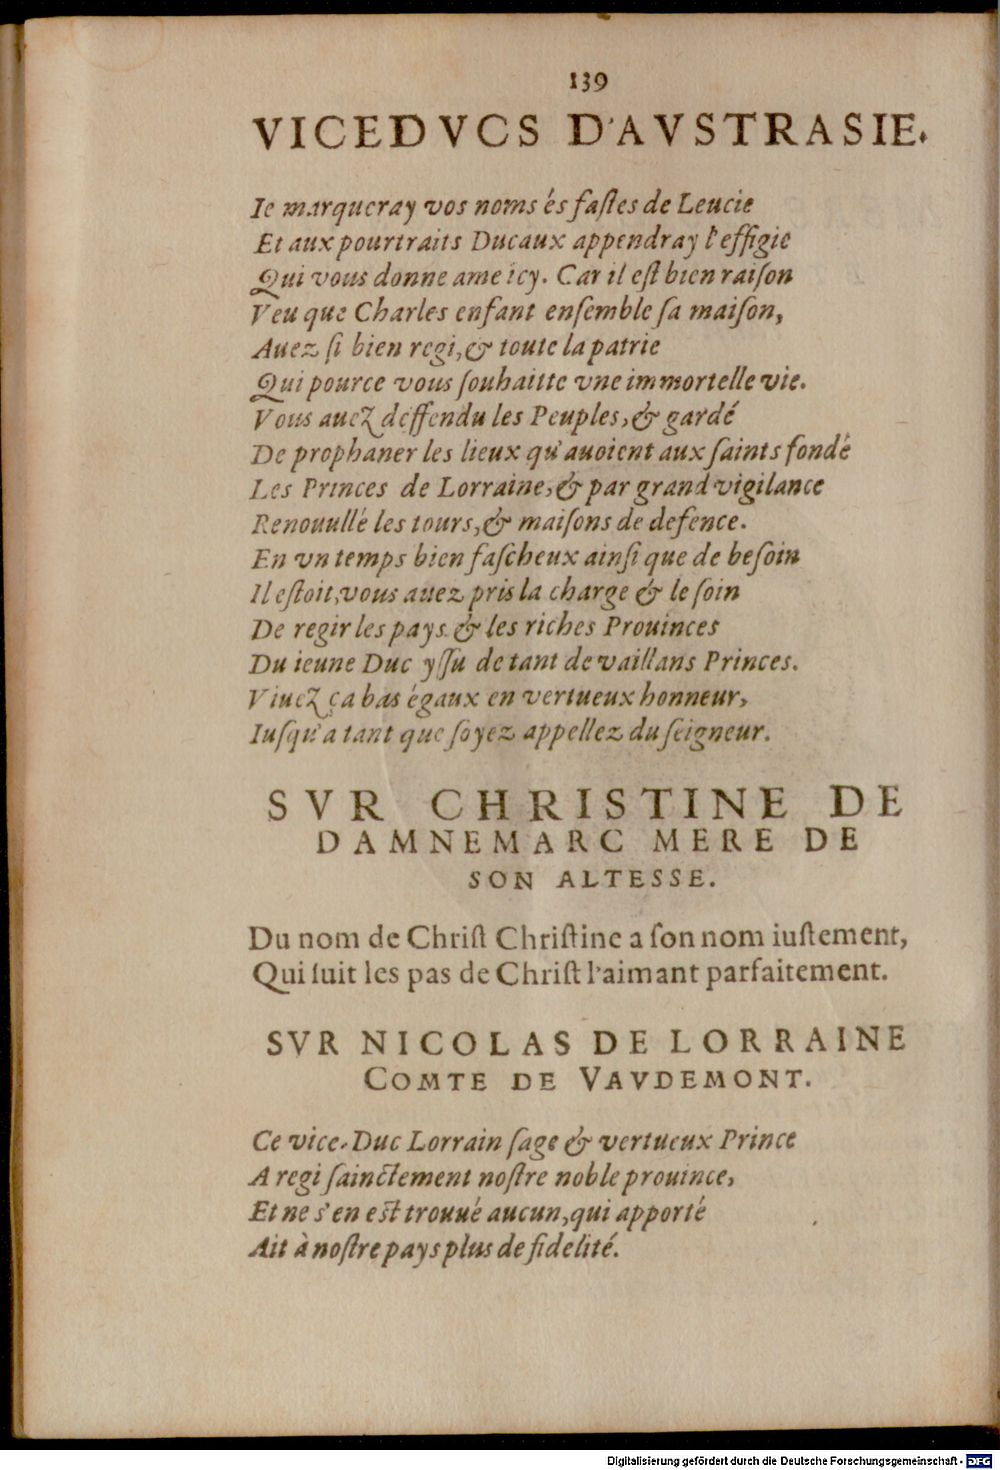 139
VICEDVCS D'AVSTRASIE.
Ie marqueray vos noms és faſtes de Leucie
Et aux pourtraits Ducaux appendray l'effigie
Qui vous donne ame icy. Car il eſt bien raiſon
Veu que Charles enfant enſemble ſa maiſon,
Auez ſi bien regi, & toute la patrie
Qui pource vous ſouhaitte vne immortelle vie.
Vous auez deffendu les Peuples, & gardé
De prophaner les lieux qu'auoient aux ſaints fondé
Les Princes de Lorraine, & par grand vigilance
Renouullé les tours, & maiſons de defence.
En vn temps bien faſcheux ainſi que de beſoin
Il eſtoit, vous auez pris la charge & le ſoin
De regir les pays. & les riches Prouinces
Du ieune Duc yſſu de tant de vaillans Princes.
Viuez ça bas égaux en vertueux honneur,
Iuſqu'a tant que ſoyez appellez du ſeigneur.
SVR CHRISTINE DE
DAMNEMARC MERE DE
SON ALTESSE.
Du nom de Chriſt Chriſtine a ſon nom iuſtement,
Qui ſuit les pas de Chriſt l'aimant parfaitement.
SVR NICOLAS DE LORRAINE
COMTE DE VAVDEMONT.
Ce vice-Duc Lorrain ſage & vertueux Prince
A regi ſainctement noſtre noble prouince,
Et ne s'en eſt trouué aucun, qui apporté
Ait à noſtre pays plus de fidelité.
Digitalisierung gefördert durch die Deutsche Forschungsgemeinschaft - DFG